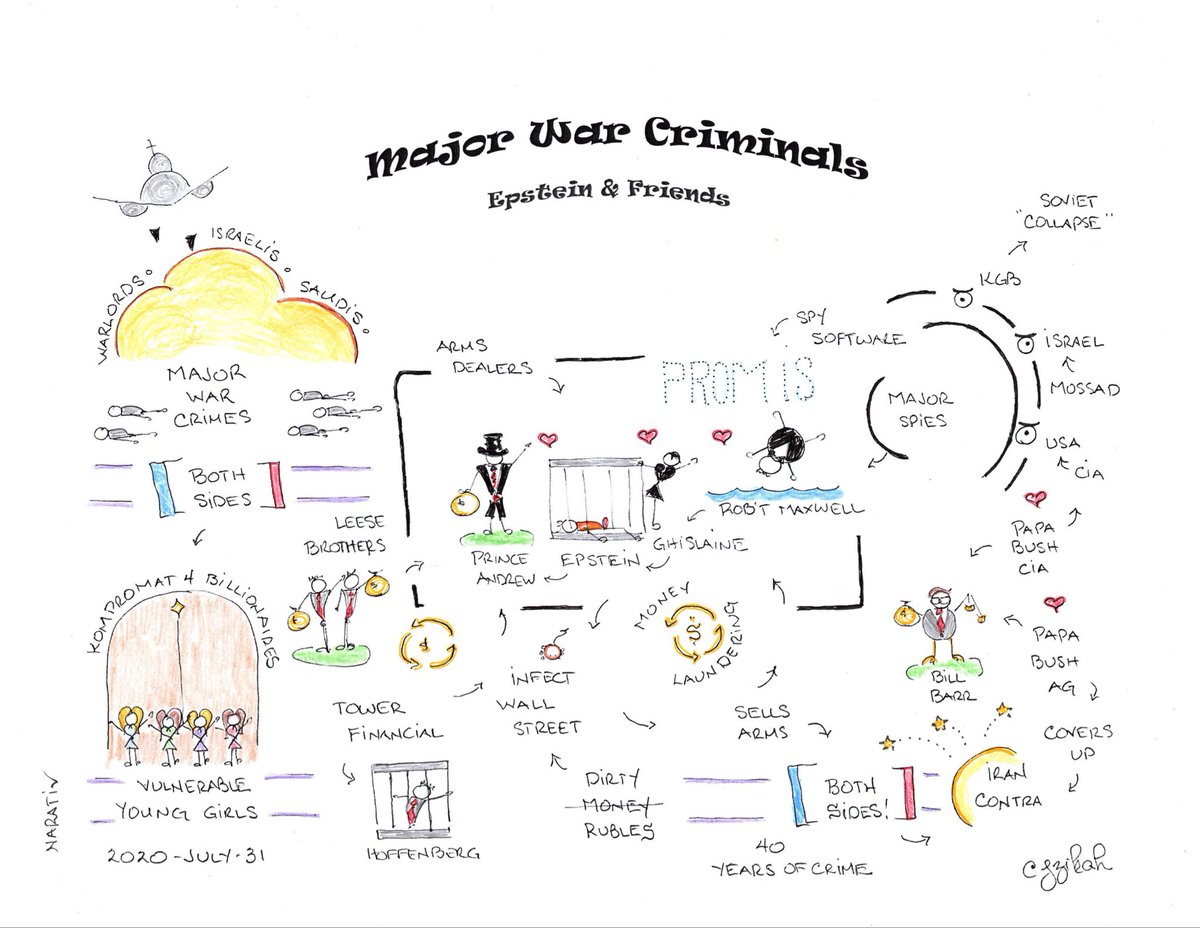 Major War Criminals
Epstein & Friends
SOVIET
"COLLAPSE"
KGB
ISRAEL
MOSSAD
USA
CIA
MAJOR
SPIES
SPY
SOFTWARE
PROMIS
ARMS
DEALERS
WARLORDS. ISRAELIS. SAUDIS.
MAJOR
WAR
CRIMES
BOTH
SIDES
LEESE
BROTHERS
PRINCE
ANDREW
EPSTEIN
GHISLAINE
ROB'T MAXWELL
PAPA
BUSH
CIA
PAPA
BUSH
AG
COVERS
UP
BILL
BARR
KOMPROMAT 4 BILLIONAIDES
MONEY
LAUNDERING
$
INFECT
WALL
STREET
TOWER
FINANCIAL
SELLS
ARMS
DIRTY
MONEY
RUBLES
BOTH
SIDES!
IRAN
CONTRA
VULNERABLE
YOUNG GIRLS
HOFFENBERG
40
YEARS OF CRIME
NARATIV
2020-JULY-31